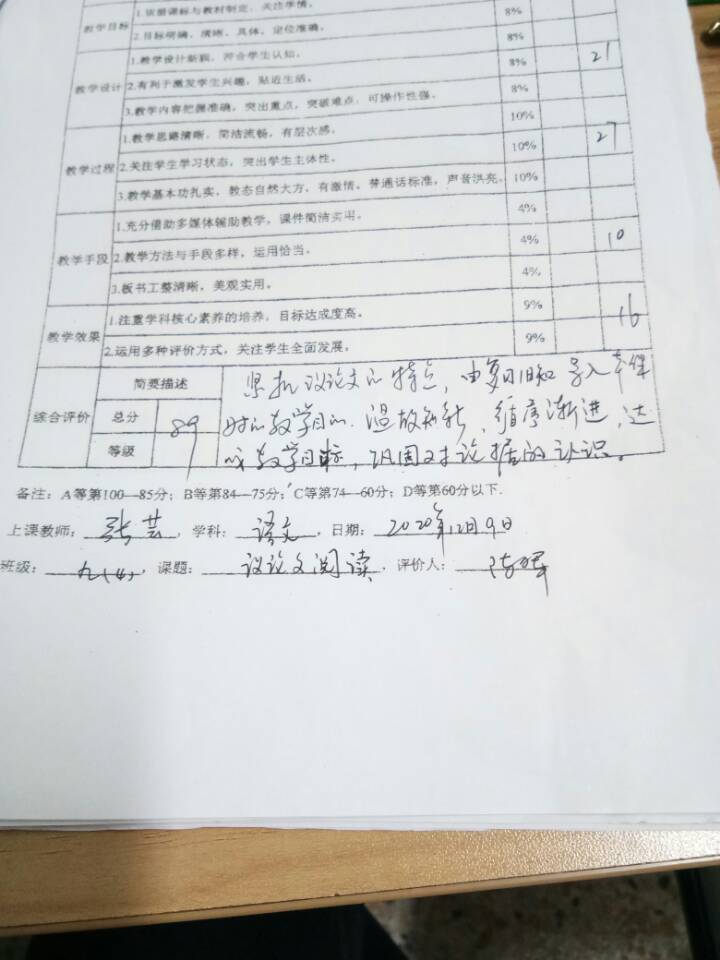 教学目标 1.依据课标与教材制定，关注学情。 8%
2.目标明确、清晰、具体，定位准确。 8%
教学设计 1.教学设计新颖，符合学生认知。 8% 21
2.有利于激发学生兴趣，贴近生活。 8%
3.教学内容把握准确，突出重点，突破难点，可操作性强。 10%
教学过程 1.教学思路清晰，简洁流畅，有层次感。 10% 27
2.关注学生学习状态，突出学生主体性。
3.教学基本功扎实，教态自然大方，有激情。普通话标准，声音洪亮。 10%
教学手段 1.充分借助多媒体辅助教学，课件简洁实用。 4%
2.教学方法与手段多样，运用恰当。 4% 10
3.板书工整清晰，美观实用。 4%
教学效果 1.注重学科核心素养的培养，目标达成度高。 9% 16
2.运用多种评价方式，关注学生全面发展。 9%
综合评价 简要描述 紧扣议论文的特点，由复习旧知导入本课
总分 89 时的教学目的，温故知新，循序渐进，达
等级 成教学目标，巩固对论据的认识。
备注：A等第100—85分；B等第84—75分；C等第74—60分；D等第60分以下.
上课教师：张芸，学科：语文，日期：2020年12月9日
班级：九(4)，课题：议论文阅读，评价人：